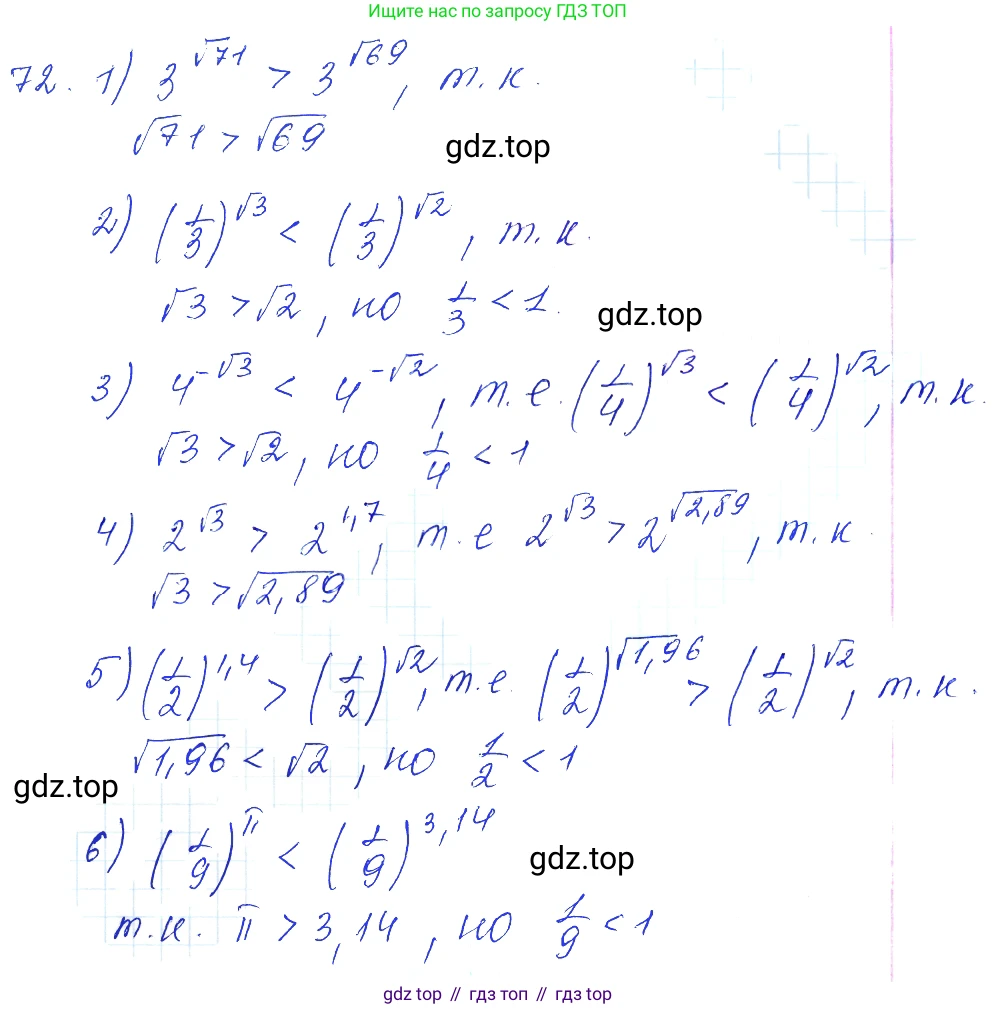 Ищите нас по запросу ГДЗ ТОП
72. 1) 3^√71 > 3^√69, т.к.
√71 > √69
gdz.top
2) (1/3)^√3 < (1/3)^√2, т.к.
√3 > √2, но 1/3 < 1.
gdz.top
3) 4^-√3 < 4^-√2, т.е. (1/4)^√3 < (1/4)^√2, т.к.
√3 > √2, но 1/4 < 1
4) 2^√3 > 2^1,7, т.е 2^√3 > 2^√2,89, т.к.
√3 > √2,89
5) (1/2)^1,4 > (1/2)^√2, т.е. (1/2)^√1,96 > (1/2)^√2, т.к.
√1,96 < √2, но 1/2 < 1
gdz.top
6) (1/9)^π < (1/9)^3,14
gdz.top
т.к. π > 3,14, но 1/9 < 1
gdz top // гдз топ // gdz top